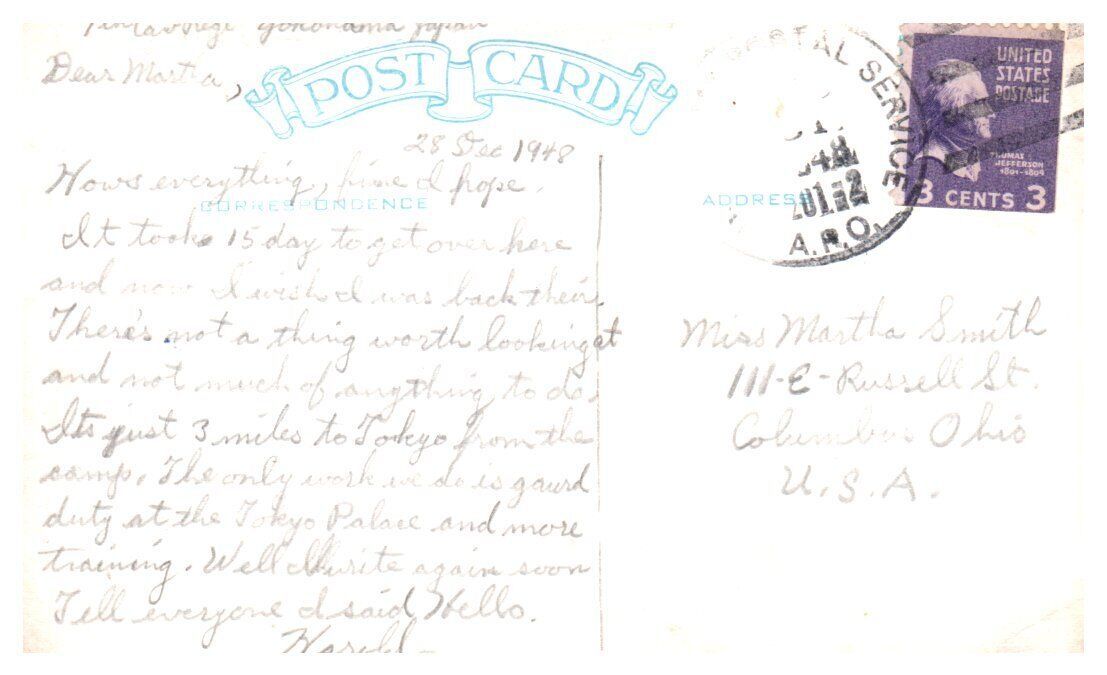 Yokohama Japan
Dear Martha,
POST CARD
28 Dec 1948
Hows everything, fine I hope.
CORRESPONDENCE
It took 15 day to get over here
and now I wish I was back their.
There's not a thing worth looking at
and not much of anything to do.
Its just 3 miles to Tokyo from the
camp. The only work we do is gaurd
duty at the Tokyo Palace and more
training. Well I'll write again soon
Tell everyone I said Hello.
Harold
POSTAL SERVICE
A.P.O.
UNITED
STATES
POSTAGE
THOMAS
JEFFERSON
1801-1809
3 CENTS 3
ADDRESS
Miss Martha Smith
111-E-Russell St.
Columbus Ohio
U.S.A.